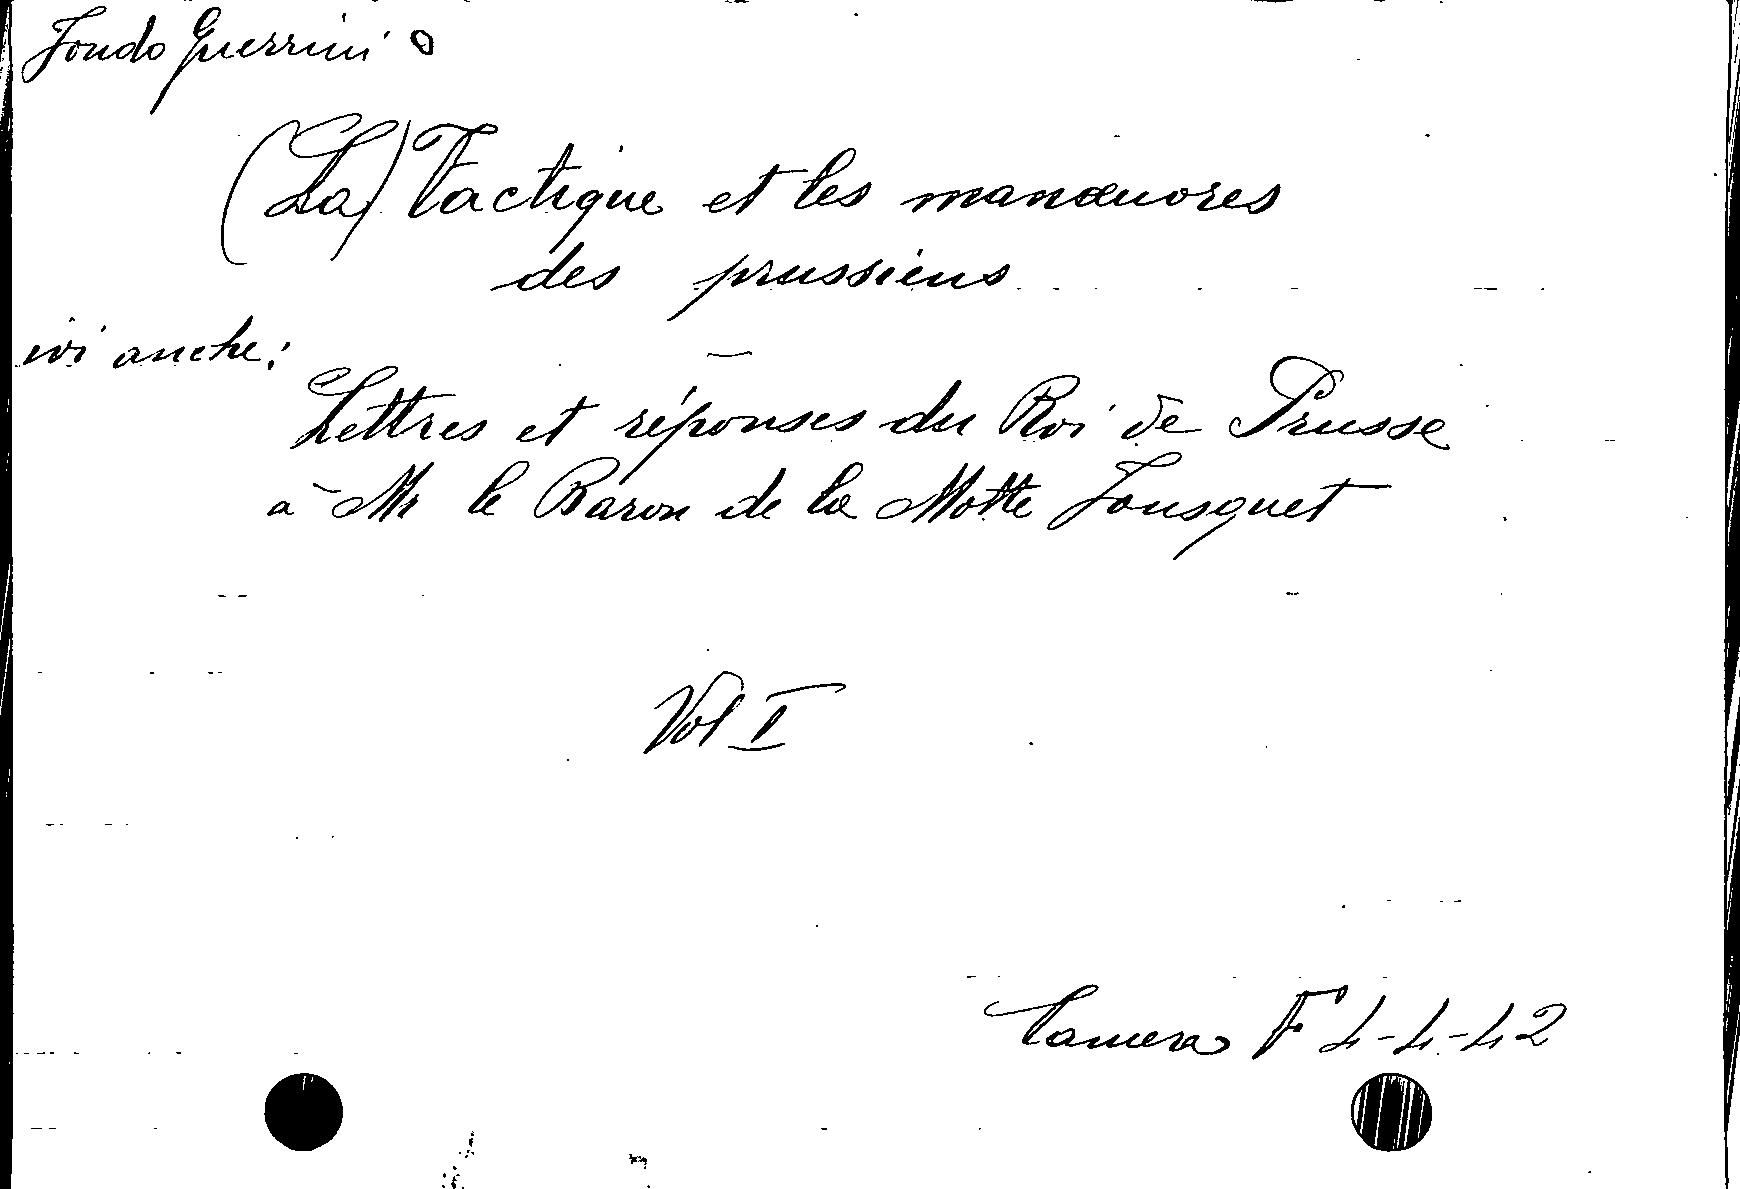 Fondo Guerrini O
(La) Tactique et les manœuvres
des prussiens
ivi anche:
Lettres et réponses du Roi de Prusse
à Mr le Baron de la Motte Fousquet
Vol I
Camera F 4-4-42